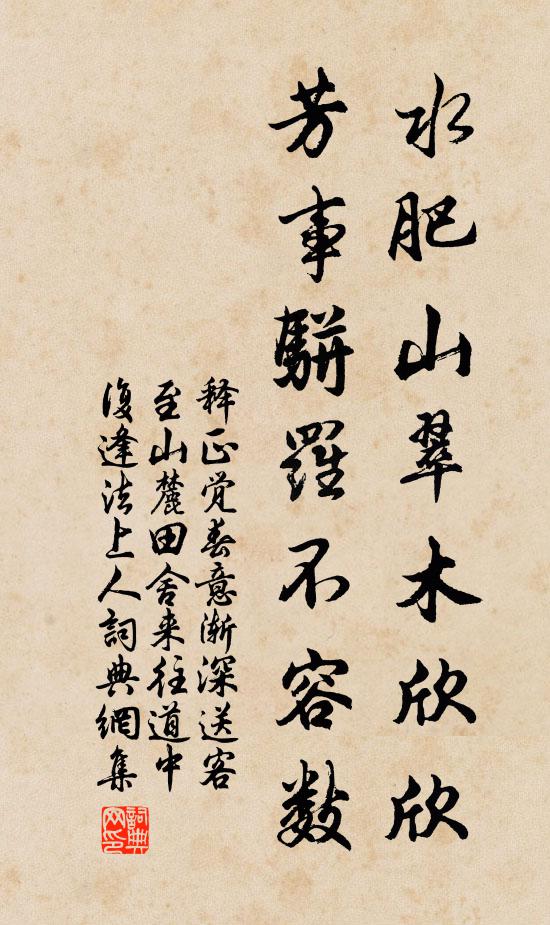 水肥山翠木欣欣
芳事駢羅不容数
释正觉春意渐深送客
至山麓田舍来往道中
復逢法上人詞典網集
詞典网印